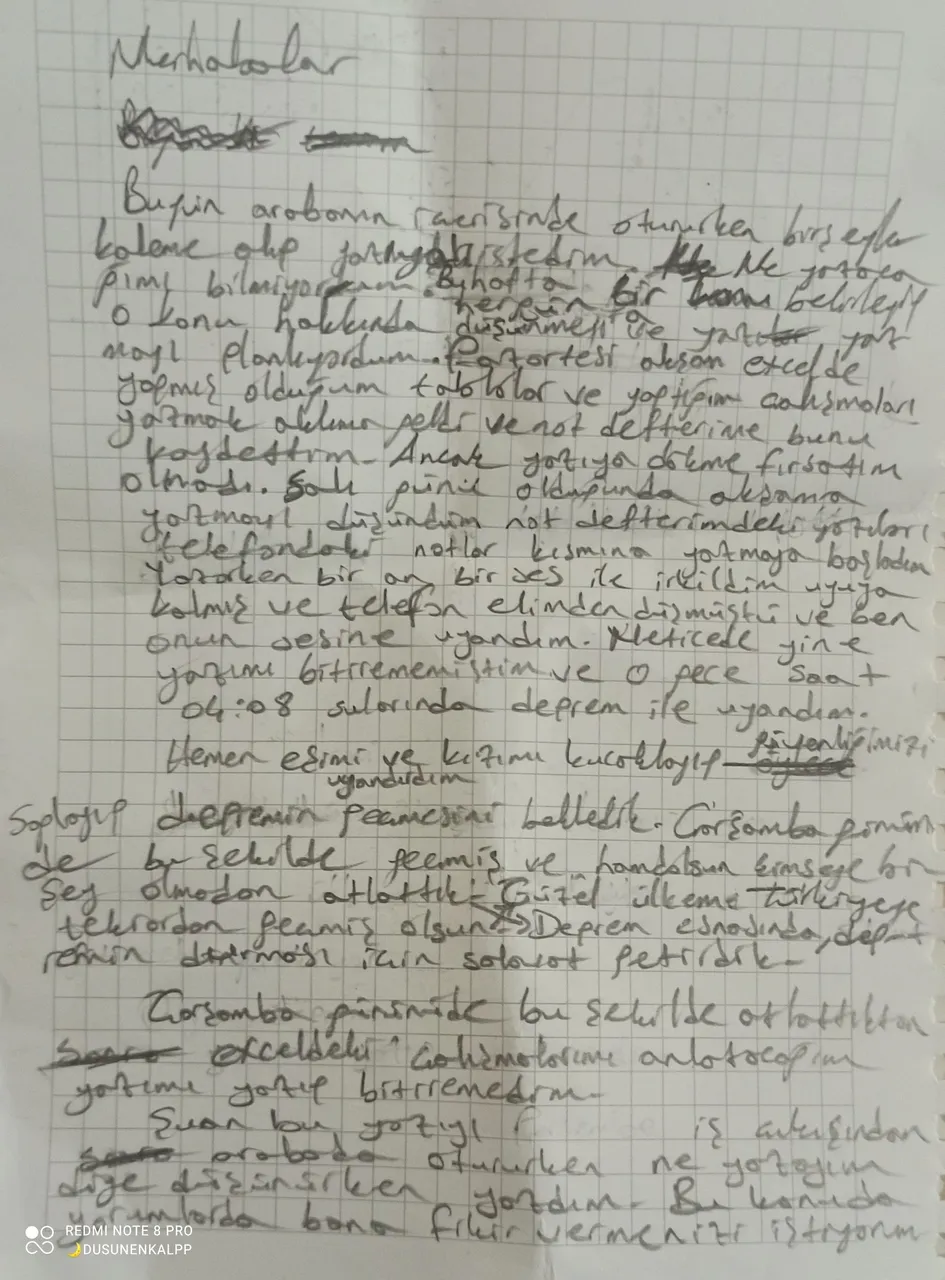 Merhabalar
Bugün arabanın içerisinde otururken birşeyler
kaleme alıp yazmak istedim. Ne yazaca
ğımı bilmiyorum. Bu hafta bir konu belirleyip
hergün
o konu hakkında düşünmeyi ve yaz
mayı planlıyordum. Pazartesi akşam excelde
yapmış olduğum tablolar ve yaptığım çalışmaları
yazmak aklıma geldi ve not defterime bunu
kaydettim. Ancak yazıya dökme fırsatım
olmadı. Salı günü olduğunda akşama
yazmayı düşündüm not defterimdeki yazıları
telefondaki notlar kısmına yazmaya başladım
Yazarken bir an bir ses ile irkildim uyuya
kalmış ve telefon elimden düşmüştü ve ben
onun sesine uyandım. Neticede yine
yazımı bitirememiştim ve o gece saat
04:08 sularında deprem ile uyandım.
Hemen eşimi ve kızımı kucaklayıp güvenliğimizi
uyandırdım
Sağlayıp depremin geçmesini bekledik. Çarşamba günün
de bu şekilde geçmiş ve hamdolsun kimseye bir
şey olmadan atlattık. Güzel ülkeme Türkiyeye
tekrardan geçmiş olsun. Deprem esnasında, dep
remin durması için salavat getirdik.
Çarşamba gününüde bu şekilde atlattıktan
exceldeki çalışmalarımı anlatacağım
yazımı yazıp bitiremedim.
Şuan bu yazıyı iş çıkışından
arabada otururken ne yazayım
diye düşünürken yazdım. Bu konuda
yorumlarda bana fikir vermenizi istiyorum
REDMI NOTE 8 PRO
DUSUNENKALPP